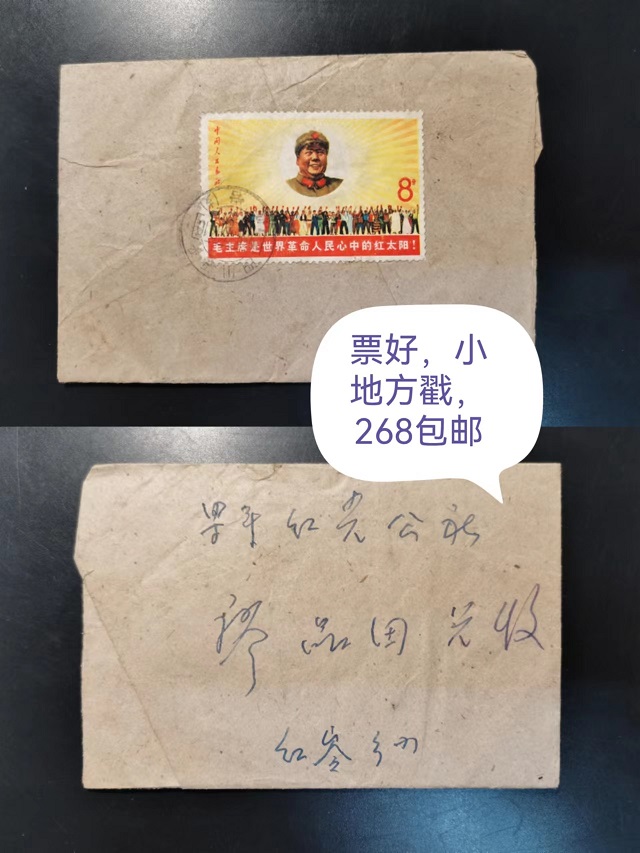 中国人民邮政
8分
毛主席是世界革命人民心中的红太阳!
票好，小
地方戳，
268包邮
红光公社
廖品因兄收
红岺